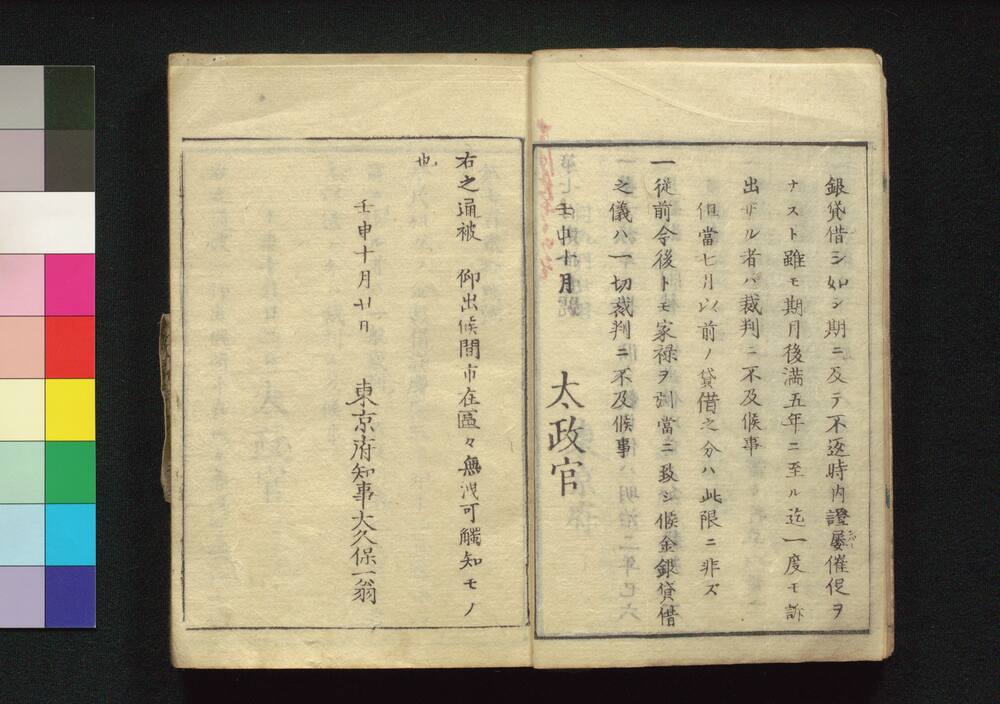 銀貸借シ如シ期ニ及テ不返時内證屡催促ヲ
ナスト雖モ期月後満五年ニ至ル迄一度モ訴
出ザル者ハ裁判ニ不及候事
但當七月以前ノ貸借之分ハ此限ニ非ズ
一従前令後トモ家禄ヲ引當ニ致シ候金銀貸借
之儀ハ一切裁判ニ不及候事
壬申十月
太政官
右之通被 仰出候間市在區々無洩可觸知モノ
也
壬申十月廿日
東京府知事大久保一翁